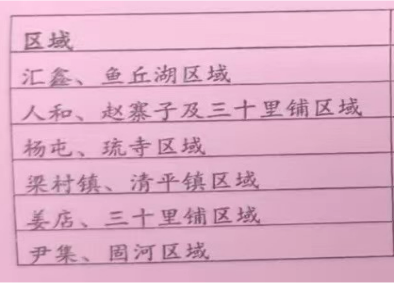 区域
汇鑫、鱼丘湖区域
人和、赵寨子及三十里铺区域
杨屯、琉寺区域
梁村镇、清平镇区域
姜店、三十里铺区域
尹集、固河区域